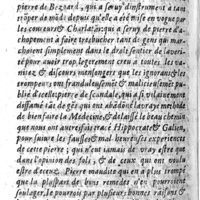 pierre de Bezoard, qui a seruy d'instrument a tant
de mode depuis qu'elle a esté mise en vogue par
les coureurs & Charlatās, qui a seruy de pierre d'a-
chopement à faire tresbucher tant de gens qui mar-
choient simplement dans le droit sentier de la veri-
té pour auoir trop legerement creu à toutes, les va-
nitez, & discours mensongers que les ignorans, & les
trompeurs, ont frauduleusemēt & malicieusemēt pu-
blié d'icelle, pierre de scandale, qui a si vilainement
diffamé tāt de gēs, qui ont abādōné la vraye methode
de bien faire la Medecine, & delaissé le beau chemin
que nous ont auec raison tracé Hippocrate & Galien,
pour suiure les fausses & mal seures experiences
de cette pierre, qui n'eut iamais de vray estre que
dans l'opinion des fols, & de ceux qui ont voulu
estre deceuz. Pierre maudite qui en a plus trompé
que la pluspart de tous remedes n'en
soulager, le pourrois par plusieurs bonnes raisons &